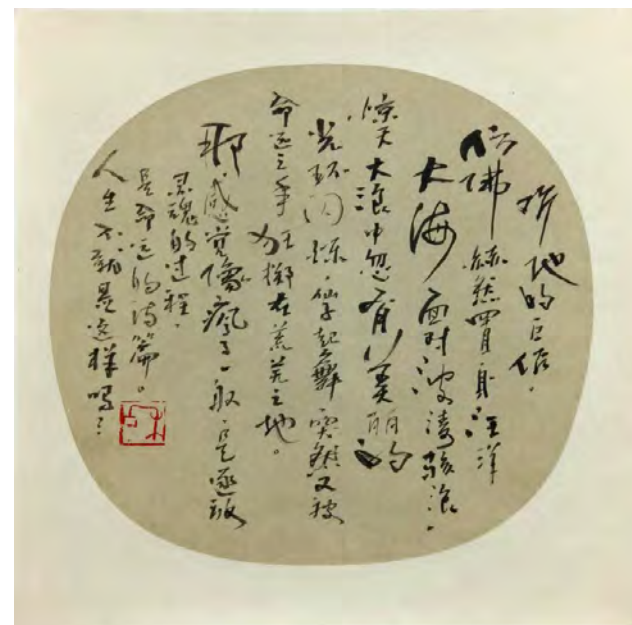 听他的巨作，
仿佛赫然四身汪洋
大海面对波涛骇浪，
惊天大浪中忽有美丽的
光环闪烁，仙子起舞突然又被
命运之手狂掷在荒芜之地。
那感觉像疯了一般，是
灵魂的过程，
是命运的诗篇。
人生不就是这样吗？